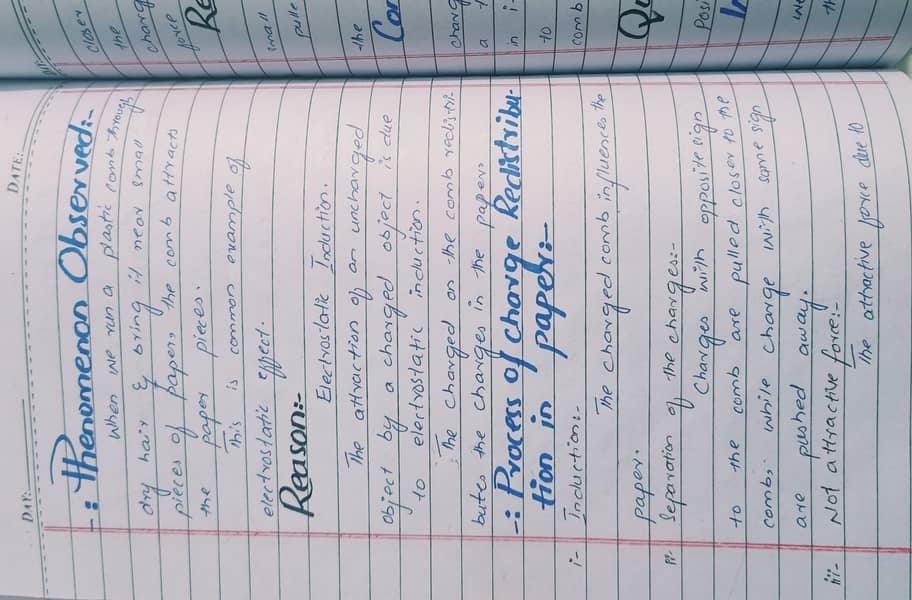 DAY:
DATE:
-: Phenomenon Observed:-
When we run a plastic comb through
dry hair & bring it near small
pieces of paper, the comb attracts
the paper pieces.
This is common example of
electrostatic effect.
Reason:-
Electrostatic Induction.
The attraction of an uncharged
object by a charged object is due
to electrostatic induction.
The charged on the comb redistri-
butes the charges in the paper.
-: Process of charge Redistribu-
tion in paper:-
i- Induction:-
The charged comb influences the
paper.
ii- Separation of the charges:-
Charges with opposite sign
to the comb are pulled closer to the
comb, while charge with same sign
are pushed away.
iii- Not attractive force:-
The attractive force due to
closer
the
charg
force
Re
small
pulle
the
Con
charg
a
in
to
comb
Qu
Posi
In
we
th